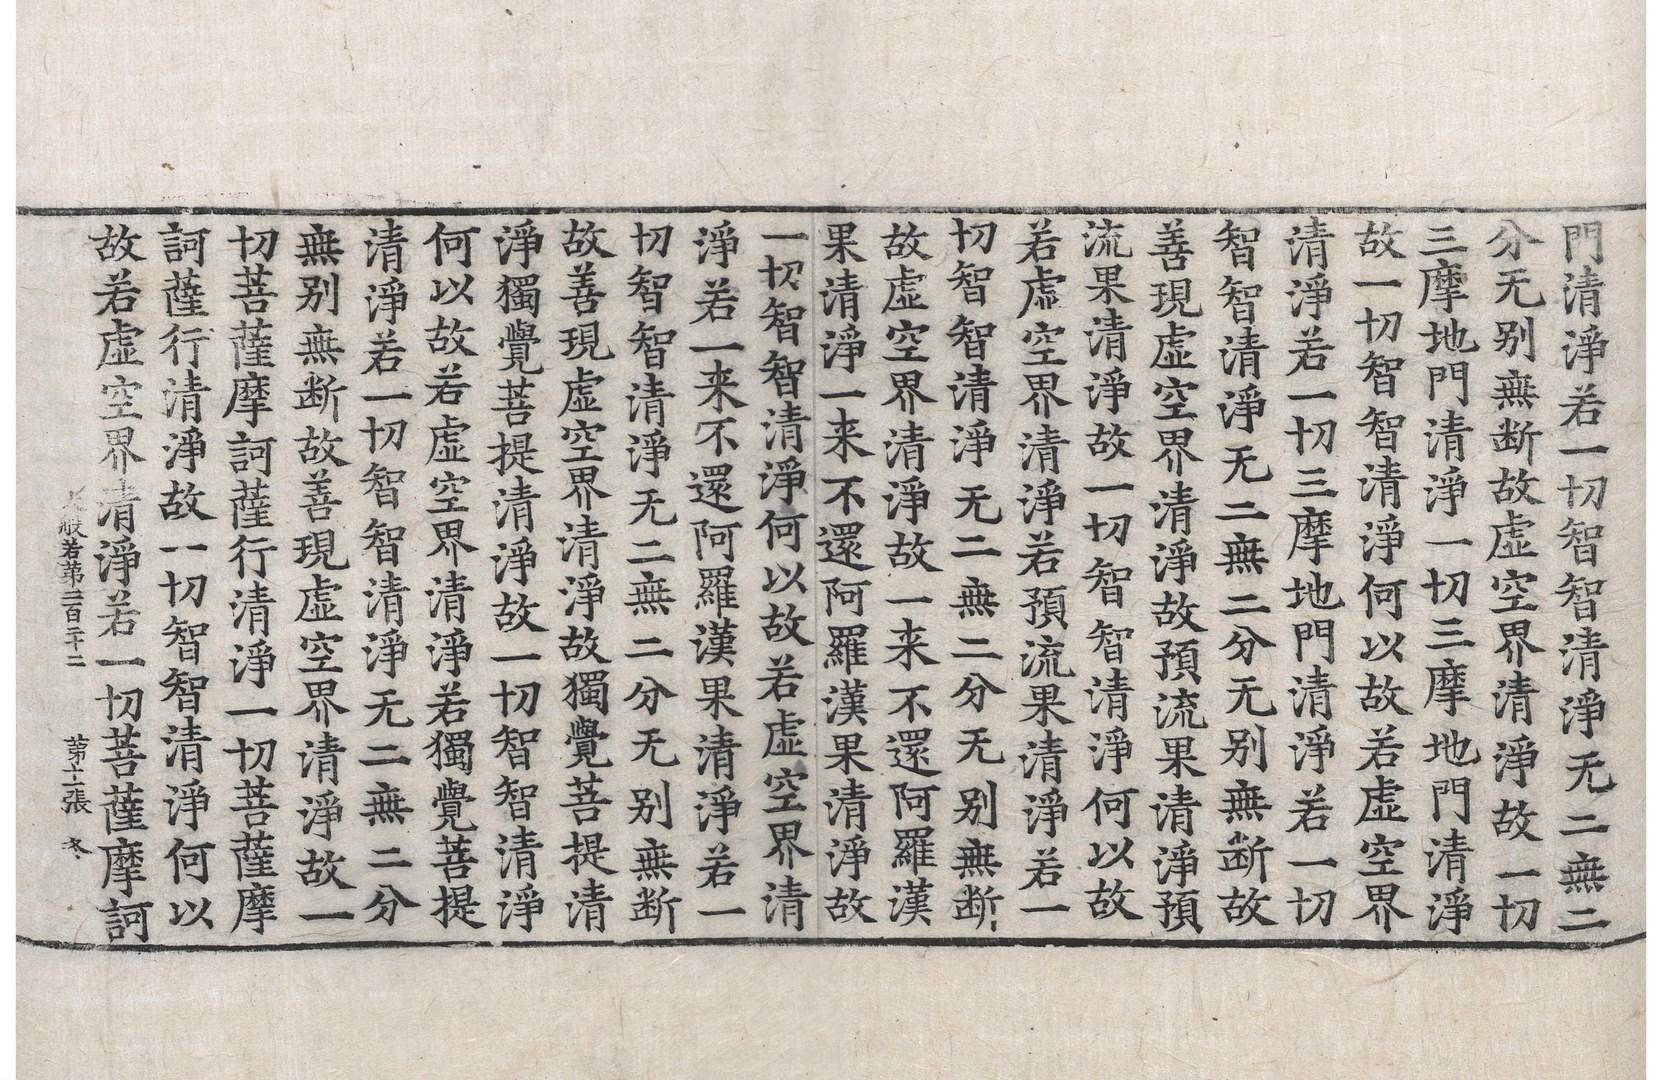 門清淨若一切智智清淨无二無二
分无别無断故虛空界清淨故一切
三摩地門清淨一切三摩地門清淨
故一切智智清淨何以故若虛空界
清淨若一切三摩地門清淨若一切
智智清淨无二無二分无别無断故
善現虛空界清淨故預流果清淨預
流果清淨故一切智智清淨何以故
若虛空界清淨若預流果清淨若一
切智智清淨无二無二分无别無断
故虛空界清淨故一来不還阿羅漢
果清淨一来不還阿羅漢果清淨故
一切智智清淨何以故若虛空界清
淨若一来不還阿羅漢果清淨若一
切智智清淨无二無二分无别無断
故善現虛空界清淨故獨覺菩提清
淨獨覺菩提清淨故一切智智清淨
何以故若虛空界清淨若獨覺菩提
清淨若一切智智清淨无二無二分
無别無断故善現虛空界清淨故一
切菩薩摩訶薩行清淨一切菩薩摩
訶薩行清淨故一切智智清淨何以
故若虛空界清淨若一切菩薩摩訶
般若苐二百三十二 苐十二張 冬